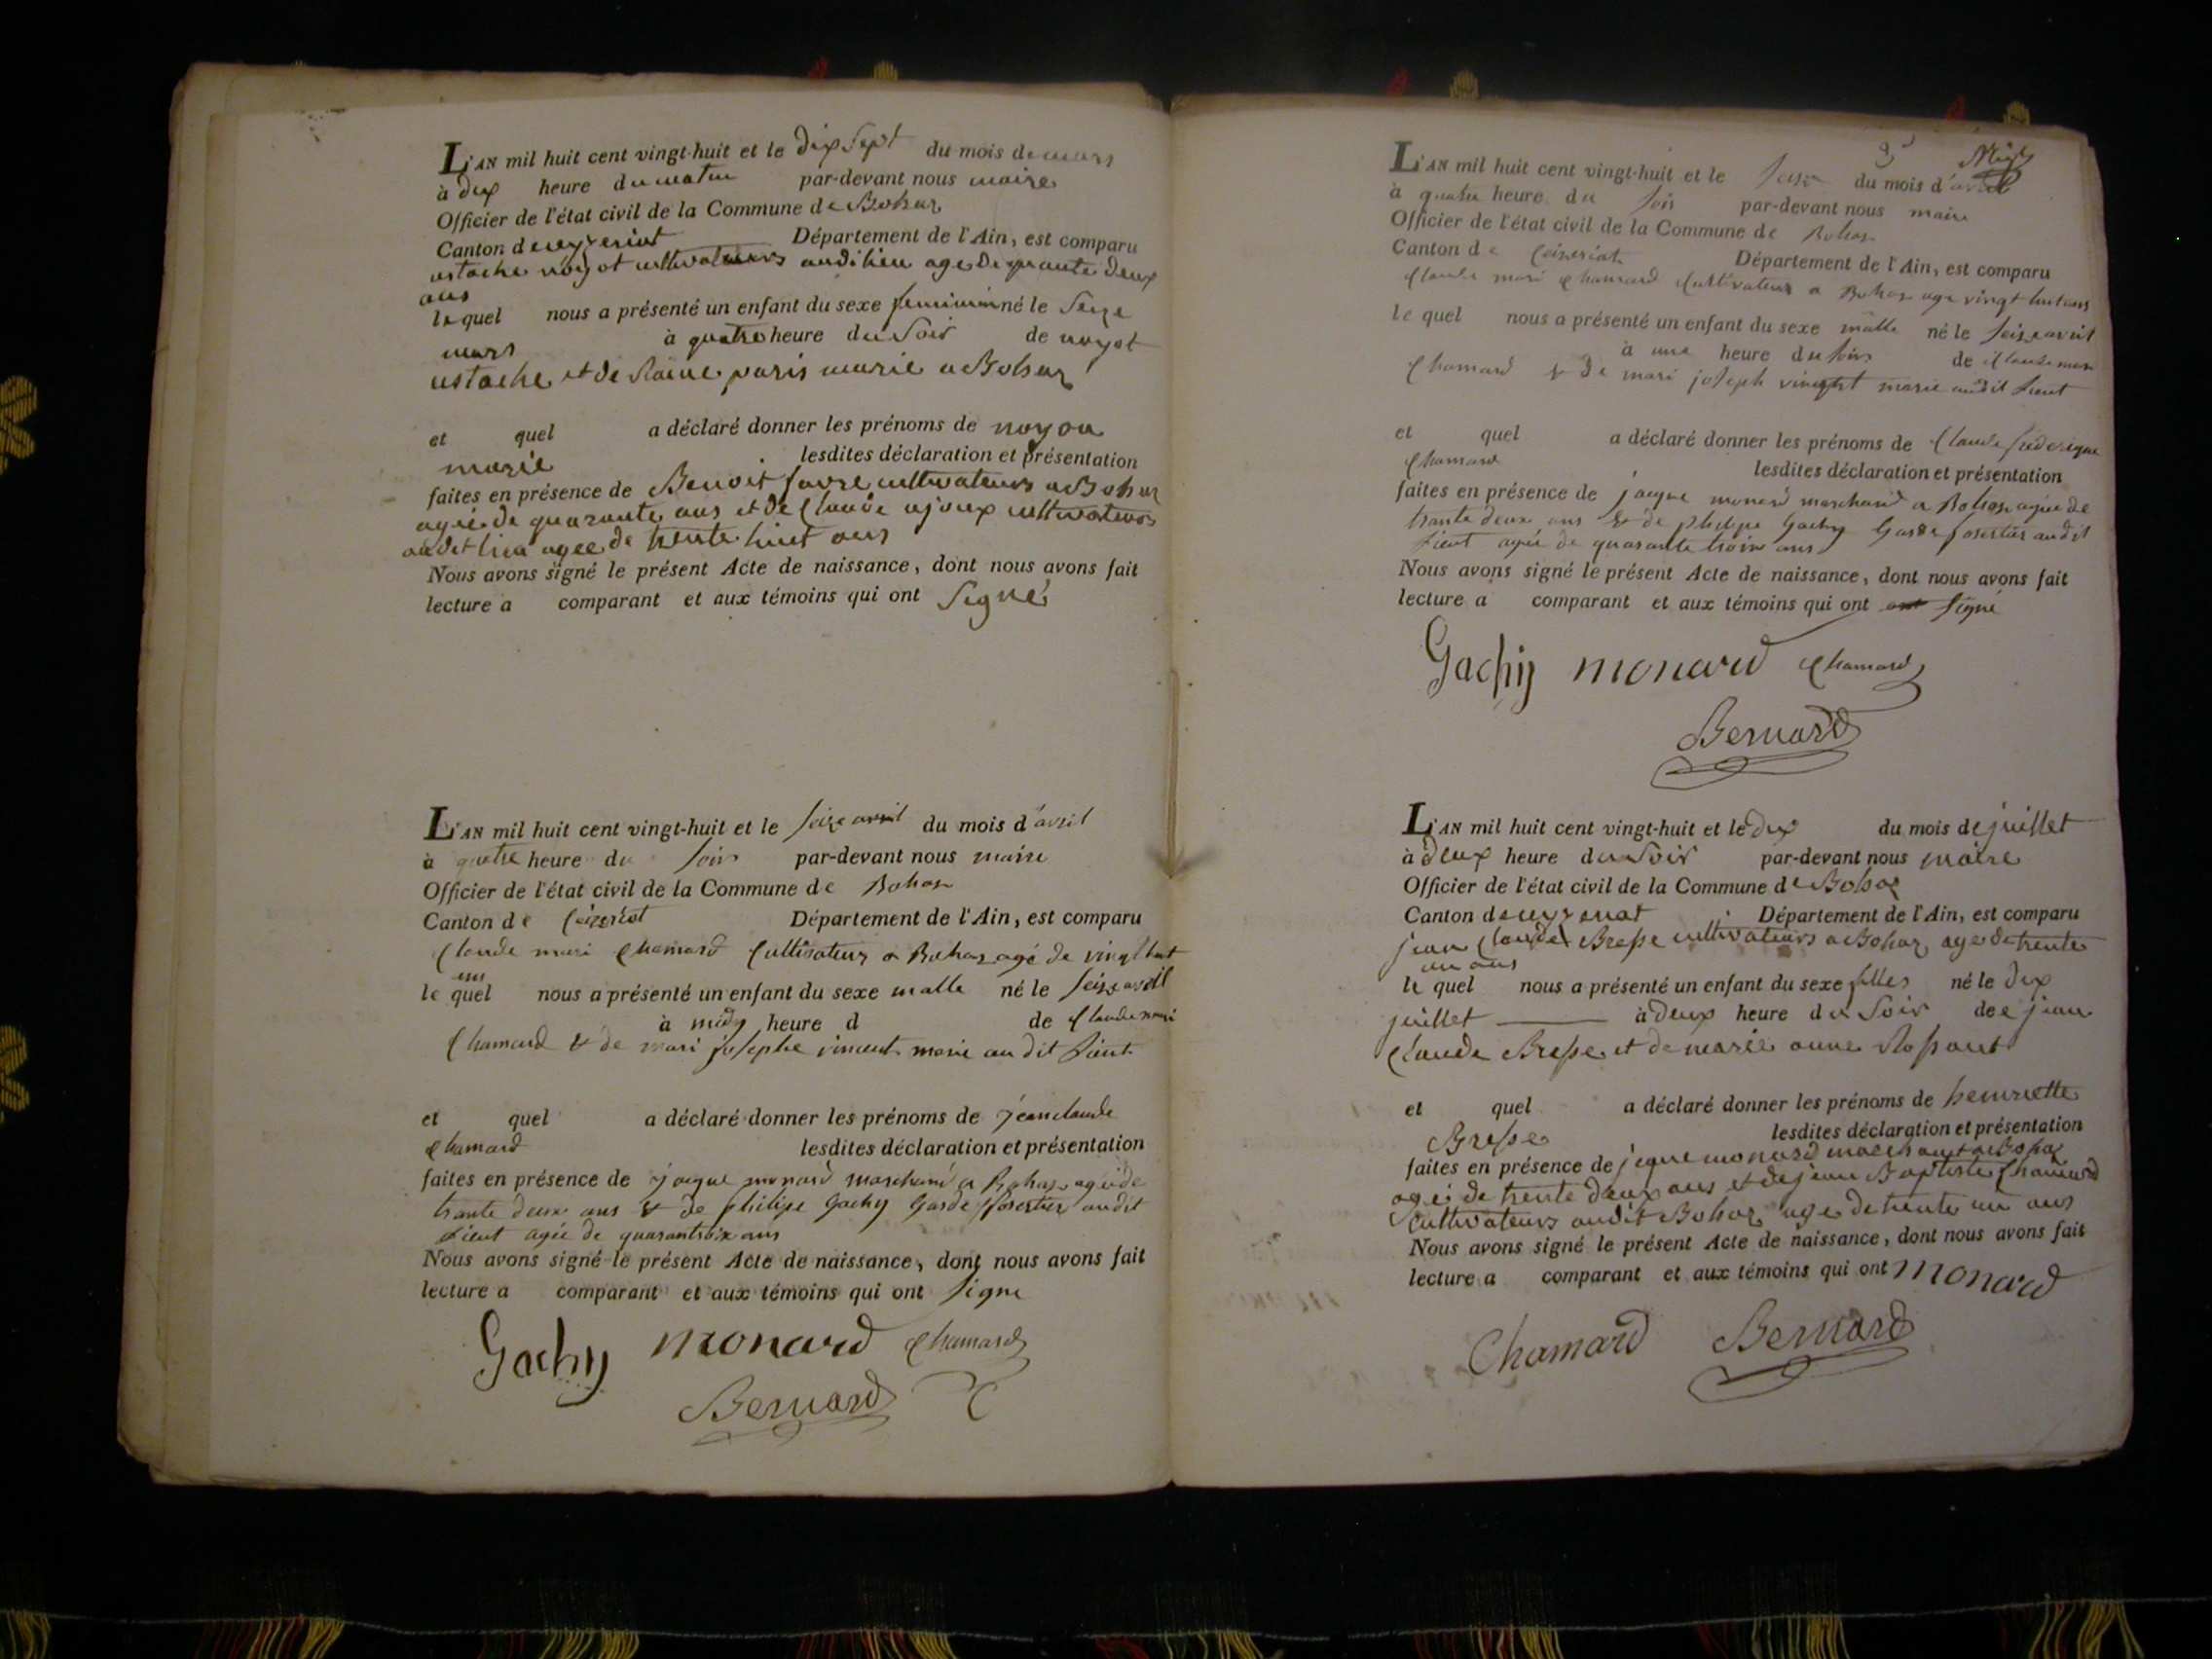 L'AN mil huit cent vingt-huit et le dix sept du mois de mars
à dix heure du matin par-devant nous maire
Officier de l'état civil de la Commune de Bohaz
Canton de ceyzeriat Département de l'Ain, est comparu
ustache noyot cultivateurs audi lieu age de quante deux
ans
le quel nous a présenté un enfant du sexe feminin né le Seize
mars à quatre heure du Soir de noyot
ustache et de paris marie a Bohaz
et quel a déclaré donner les prénoms de
marie lesdites déclaration et présentation
faites en présence de Benoit favre cultivateurs a Bohaz
agée de quarante ans et de Claude ajoux cultivateurs
audit lieu agee de trente huit ans
Nous avons signé le présent Acte de naissance, dont nous avons fait
lecture a comparant et aux témoins qui ont Signé
L'AN mil huit cent vingt-huit et le seize avril du mois d'avril
à quatre heure du soir par-devant nous maire
Officier de l'état civil de la Commune de Bohas
Canton de Ceizeriat Département de l'Ain, est comparu
Claude mari Chamard Cultivateur a Bohas agé de vingt huit
le quel nous a présenté un enfant du sexe malle né le seize avril
à midy heure d de Claude mari
Chamard & de mari josephe vincent marie au dit Lieut
et quel a déclaré donner les prénoms de jean claude
Chamard lesdites déclaration et présentation
faites en présence de jacque monard marchand a Bohas agée de
trante deux ans & de philipe Gachy Garde forestier audit
Lieut agée de
Nous avons signé le présent Acte de naissance, dont nous avons fait
lecture a comparant et aux témoins qui ont signe
Gachy monard Chamard
Bernard
L'AN mil huit cent vingt-huit et le seize du mois d'avril
à quatre heure du soir par-devant nous maire
Officier de l'état civil de la Commune de Bohas
Canton de Ceizeriat Département de l'Ain, est comparu
Claude mari Chamard Cultivateur a Bohas age vingt huit ans
le quel nous a présenté un enfant du sexe malle né le seize avril
à une heure du soir de Claude mari
Chamard & de mari joseph marie audit Lieut
et quel a déclaré donner les prénoms de Claude frederique
Chamard lesdites déclaration et présentation
faites en présence de jacque monard marchand a Bohas agée de
trante deux ans & de philipe Gachy Garde forestier audit
Lieut agée de quarante trois ans
Nous avons signé le présent Acte de naissance, dont nous avons fait
lecture a comparant et aux témoins qui ont ont signé
Gachy monard Chamard
Bernard
L'AN mil huit cent vingt-huit et le dix du mois de juillet
à deux heure du Soir par-devant nous maire
Officier de l'état civil de la Commune de Bohaz
Canton de ceyzeriat Département de l'Ain, est comparu
jean Claude Bresse cultivateurs a Bohaz age de trente
un ans
le quel nous a présenté un enfant du sexe filles né le dix
juillet à deux heure du Soir dee jean
Claude Bresse et de marie anne
et quel a déclaré donner les prénoms de henriette
Bresse lesdites déclaration et présentation
faites en présence de jeque monard marchant a Bohaz
agei de trente deux ans et de jean Baptiste Chamard
Cultivateurs audit Bohaz age de trente un ans
Nous avons signé le présent Acte de naissance, dont nous avons fait
lecture a comparant et aux témoins qui ont monard
Chamard Bernard